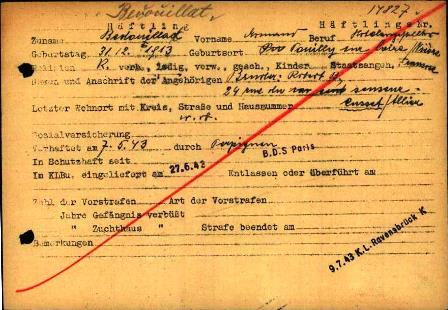 Bedouillat.
14827
Häftling Häftlingsnr.
Zuname Bedouillat Vorname Armand Beruf
Geburtstag 31.12.1913 Geburtsort Pouilly sur Loire
Religion R. verh., ledig, verw., gesch., Kinder, Staatsangeh.
Namen und Anschrift der Angehörigen Bruder: Robert
24 rue du
Letzter Wohnort mit Kreis, Straße und Hausnummer Cusset/Allier
w.o.
Sozialversicherung
Verhaftet am 7.5.43 durch Perpignan B.D.S Paris
In Schutzhaft seit
Im KLBu. eingeliefert am 27.6.43 Entlassen oder überführt am
Zahl der Vorstrafen Art der Vorstrafen
Jahre Gefängnis verbüßt
" Zuchthaus " Strafe beendet am
Bemerkungen
9.7.43 K.L. Ravensbrück K